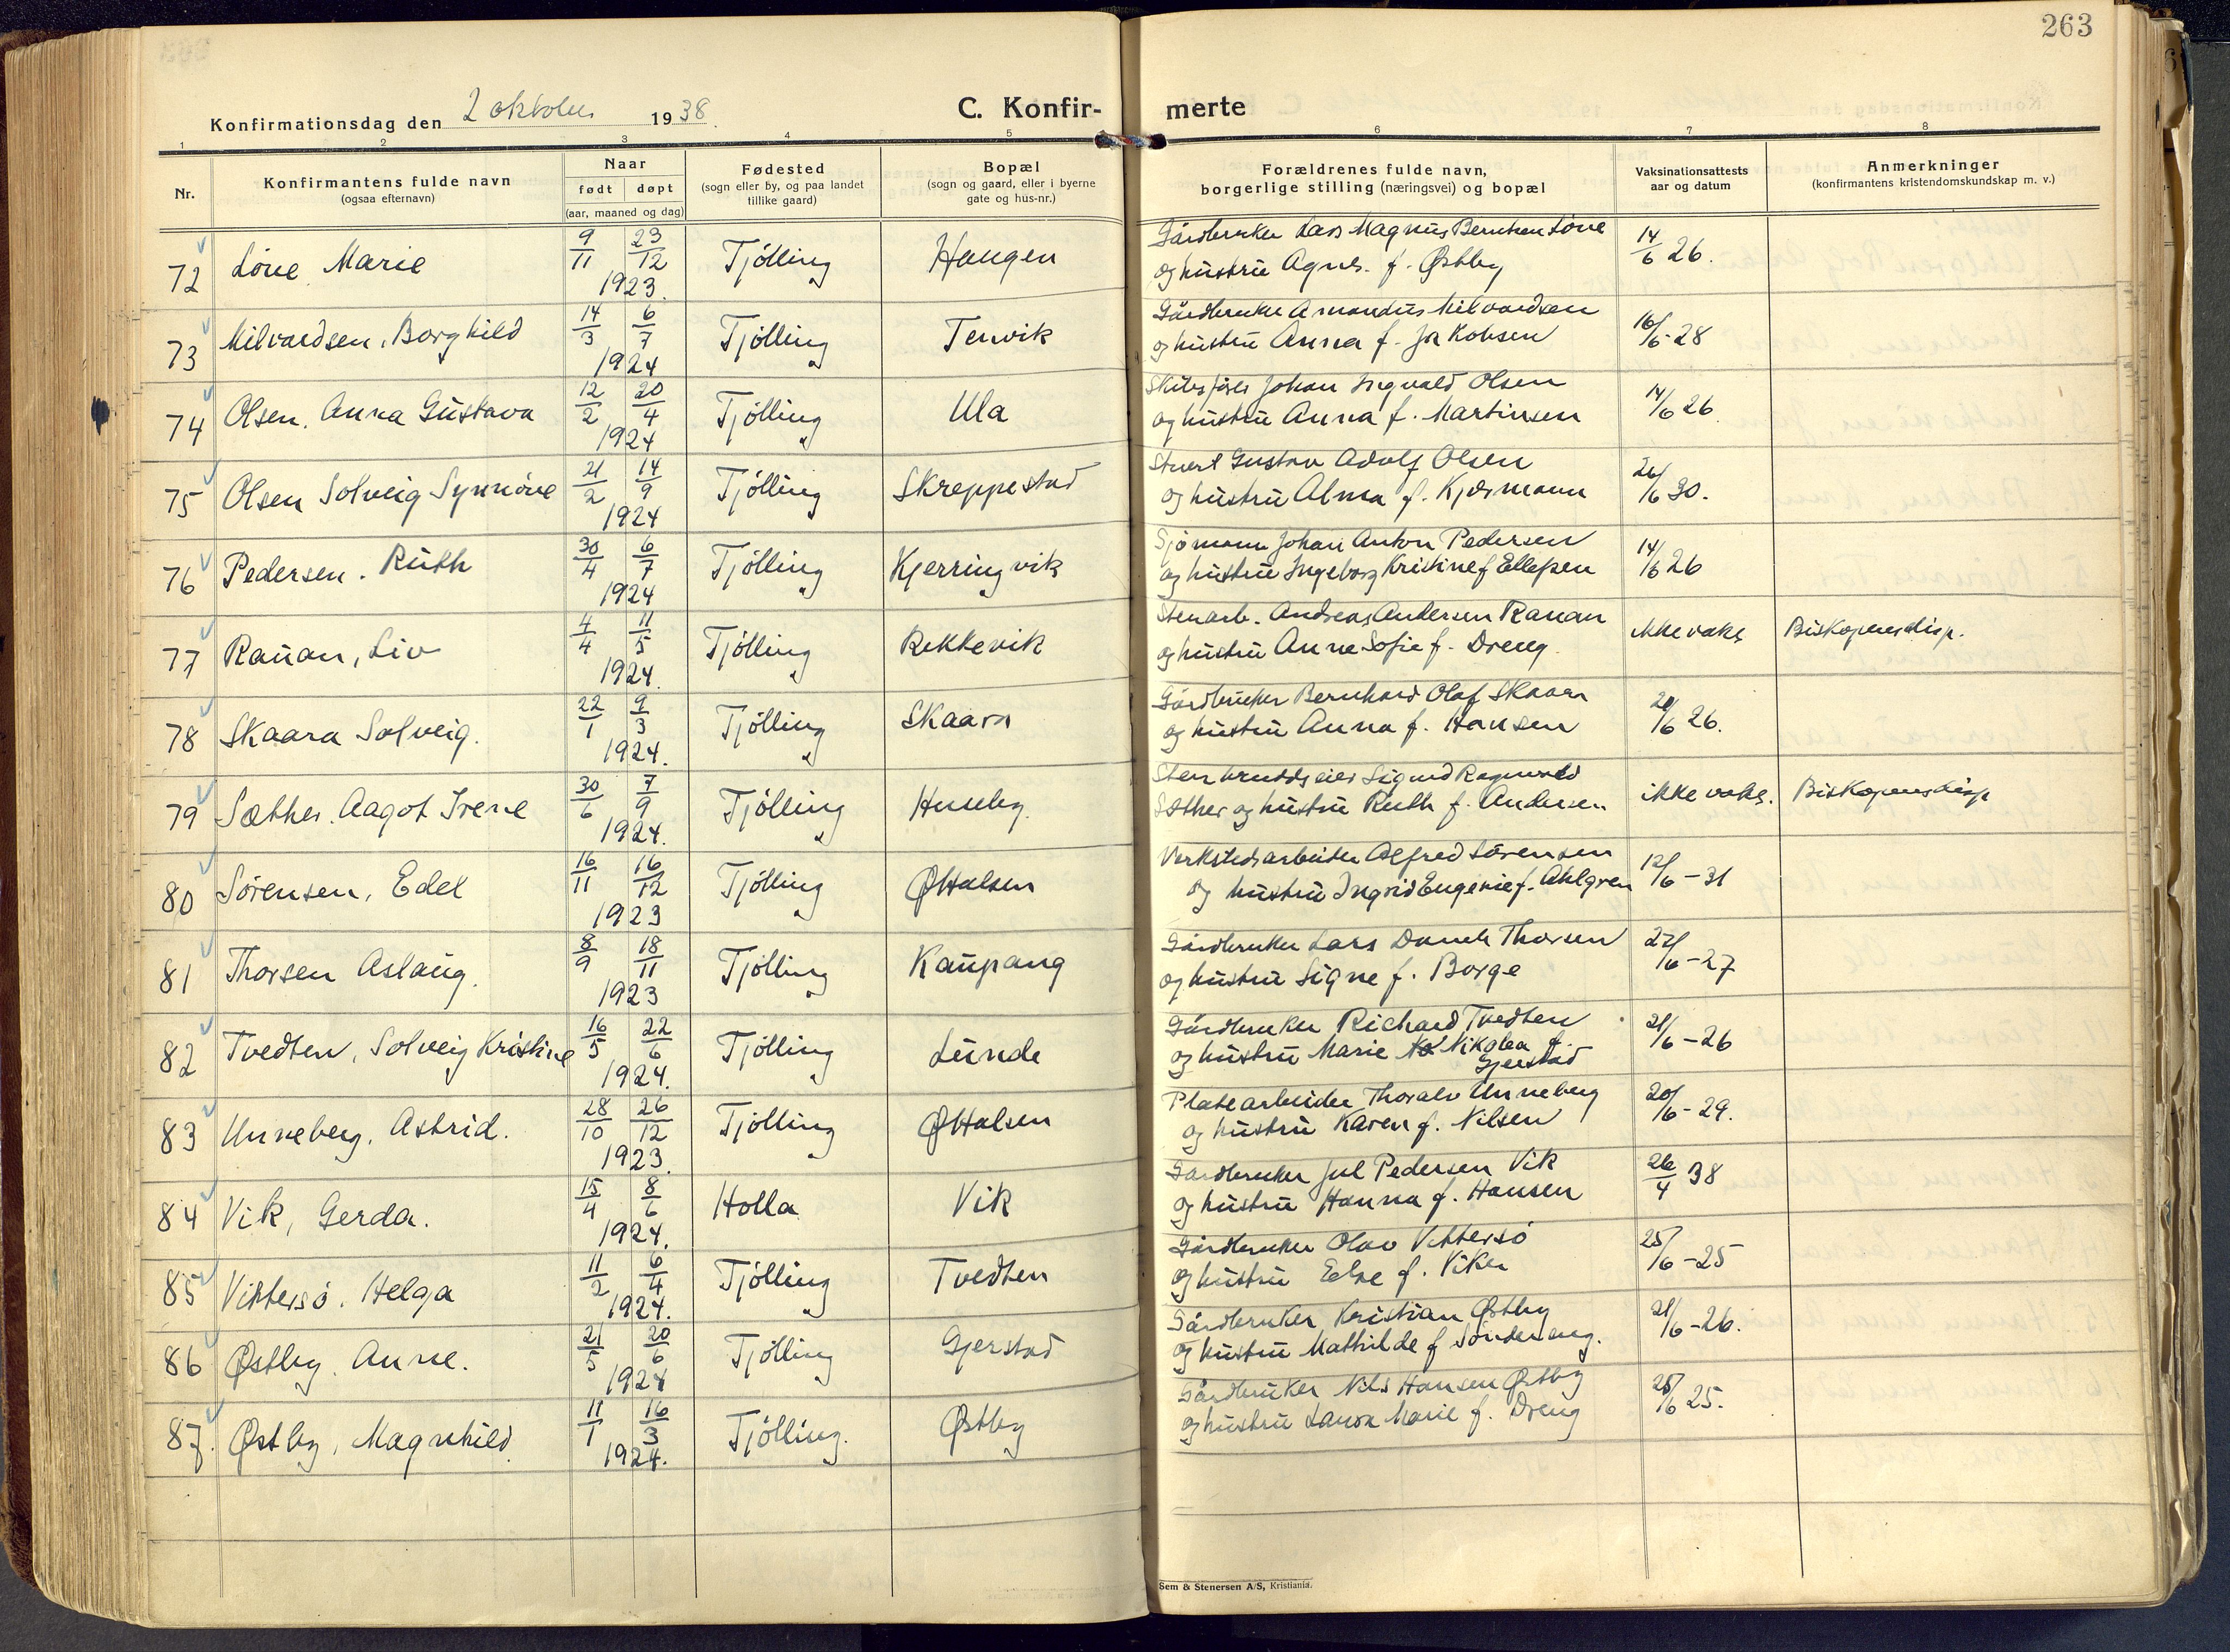 263
Konfirmationsdag den 2 oktober 1938.
C. Konfir- merte
1 2 3 4 5 6 7 8
Nr.
Konfirmantens fulde navn
(ogsaa efternavn)
Naar
født døpt
(aar, maaned og dag)
Fødested
(sogn eller by, og paa landet
tillike gaard)
Bopæl
(sogn og gaard, eller i byerne
gate og hus-nr.)
Forældrenes fulde navn,
borgerlige stilling (næringsvei) og bopæl
Vaksinationsattests
aar og datum
Anmerkninger
(konfirmantens kristendomskundskap m. v.)
72 Løve Marie 9/11 23/12 1923. Tjølling Haugen Gårdbruker Lars Magnus Berntsen Løve
og hustru Agnes. f. Østby 14/6 26.
73 Milvardsen, Borghild 14/3 6/7 1924 Tjølling Tenvik Gårdbruker Amandus Milvardsen
og hustru Anna f. Jakobsen 16/6-28
74 Olsen, Anna Gustava 12/2 20/4 1924 Tjølling Ula Skibsfører Johan Ingvald Olsen
og hustru Anna f. Martinsen 14/6 26
75 Olsen Solveig Synnøve 21/2 14/9 1924 Tjølling Skreppestad Stuert Gustav Adolf Olsen
og hustru Alma f. Kjærmann 26/6 30.
76 Pedersen. Ruth 30/4 6/7 1924 Tjølling Kjerringvik Sjømann Johan Anton Pedersen
og hustru Ingeborg Kristine f Ellefsen 14/6 26
77 Rauan, Liv 4/4 11/5 1924. Tjølling Rekkevik Stenarb. Andreas Andersen Rauan
og hustru Anne Sofie f. Dreng. ikke vaks Biskopens disp.
78 Skaara Solveig. 22/1 9/3 1924. Tjølling Skaara Gårdbruker Bernhard Olaf Skaara
og hustru Anna f. Hansen 26.
79 Sæther. Aagot Irene 30/6 7/9 1924. Tjølling Huseby. Stenbruddseier Sigurd Ragnvald
Sæther og hustru Ruth f. Andersen ikke vaks. Biskopens disp
80 Sørensen, Edel 16/11 16/12 1923 Tjølling ØHalsen Verkstedsarbeider Alfred Sørensen
og hustru Ingrid Eugenie f. Ahlgren 12/6-31
81 Thorsen Aslaug. 8/9 18/11 1923 Tjølling Kaupang Gårdbruker Lars Thorsen
og hustru Signe f. Borge 27/6-27
82 Tvedten, Solveig Kristine 16/5 22/6 1924. Tjølling Lunde Gårdbruker Richard Tvedten
og hustru Marie Nikolea f.
Gjerstad 21/6-26
83 Unneberg, Astrid. 28/10 26/12 1923. Tjølling ØHalsen Platearbeider Thoralv Unneberg
og hustru Karen f. Nilsen 20/6-29.
84 Vik, Gerda. 15/4 8/6 1924. Holla Vik Gårdbruker Jul Pedersen Vik
og hustru Hanna f. Hansen 26/4 38
85 Vittersø. Helga 11/2 6/4 1924. Tjølling Tvedten Gårdbruker Olav Vittersø
og hustru f. Viken 25/6-25
86 Østby. Anne. 21/5 20/6 1924 Tjølling Gjerstad Gårdbruker Kristian Østby
og hustru Mathilde f Søndereng. 21/6-26.
87. Østby, Magnhild. 11/1 16/3 1924. Tjølling. Østby Gårdbruker Nils Hansen Østby
og hustru Laura Marie f. Dreng 25/6 25.
Sem & Stenersen A/S, Kristiania.